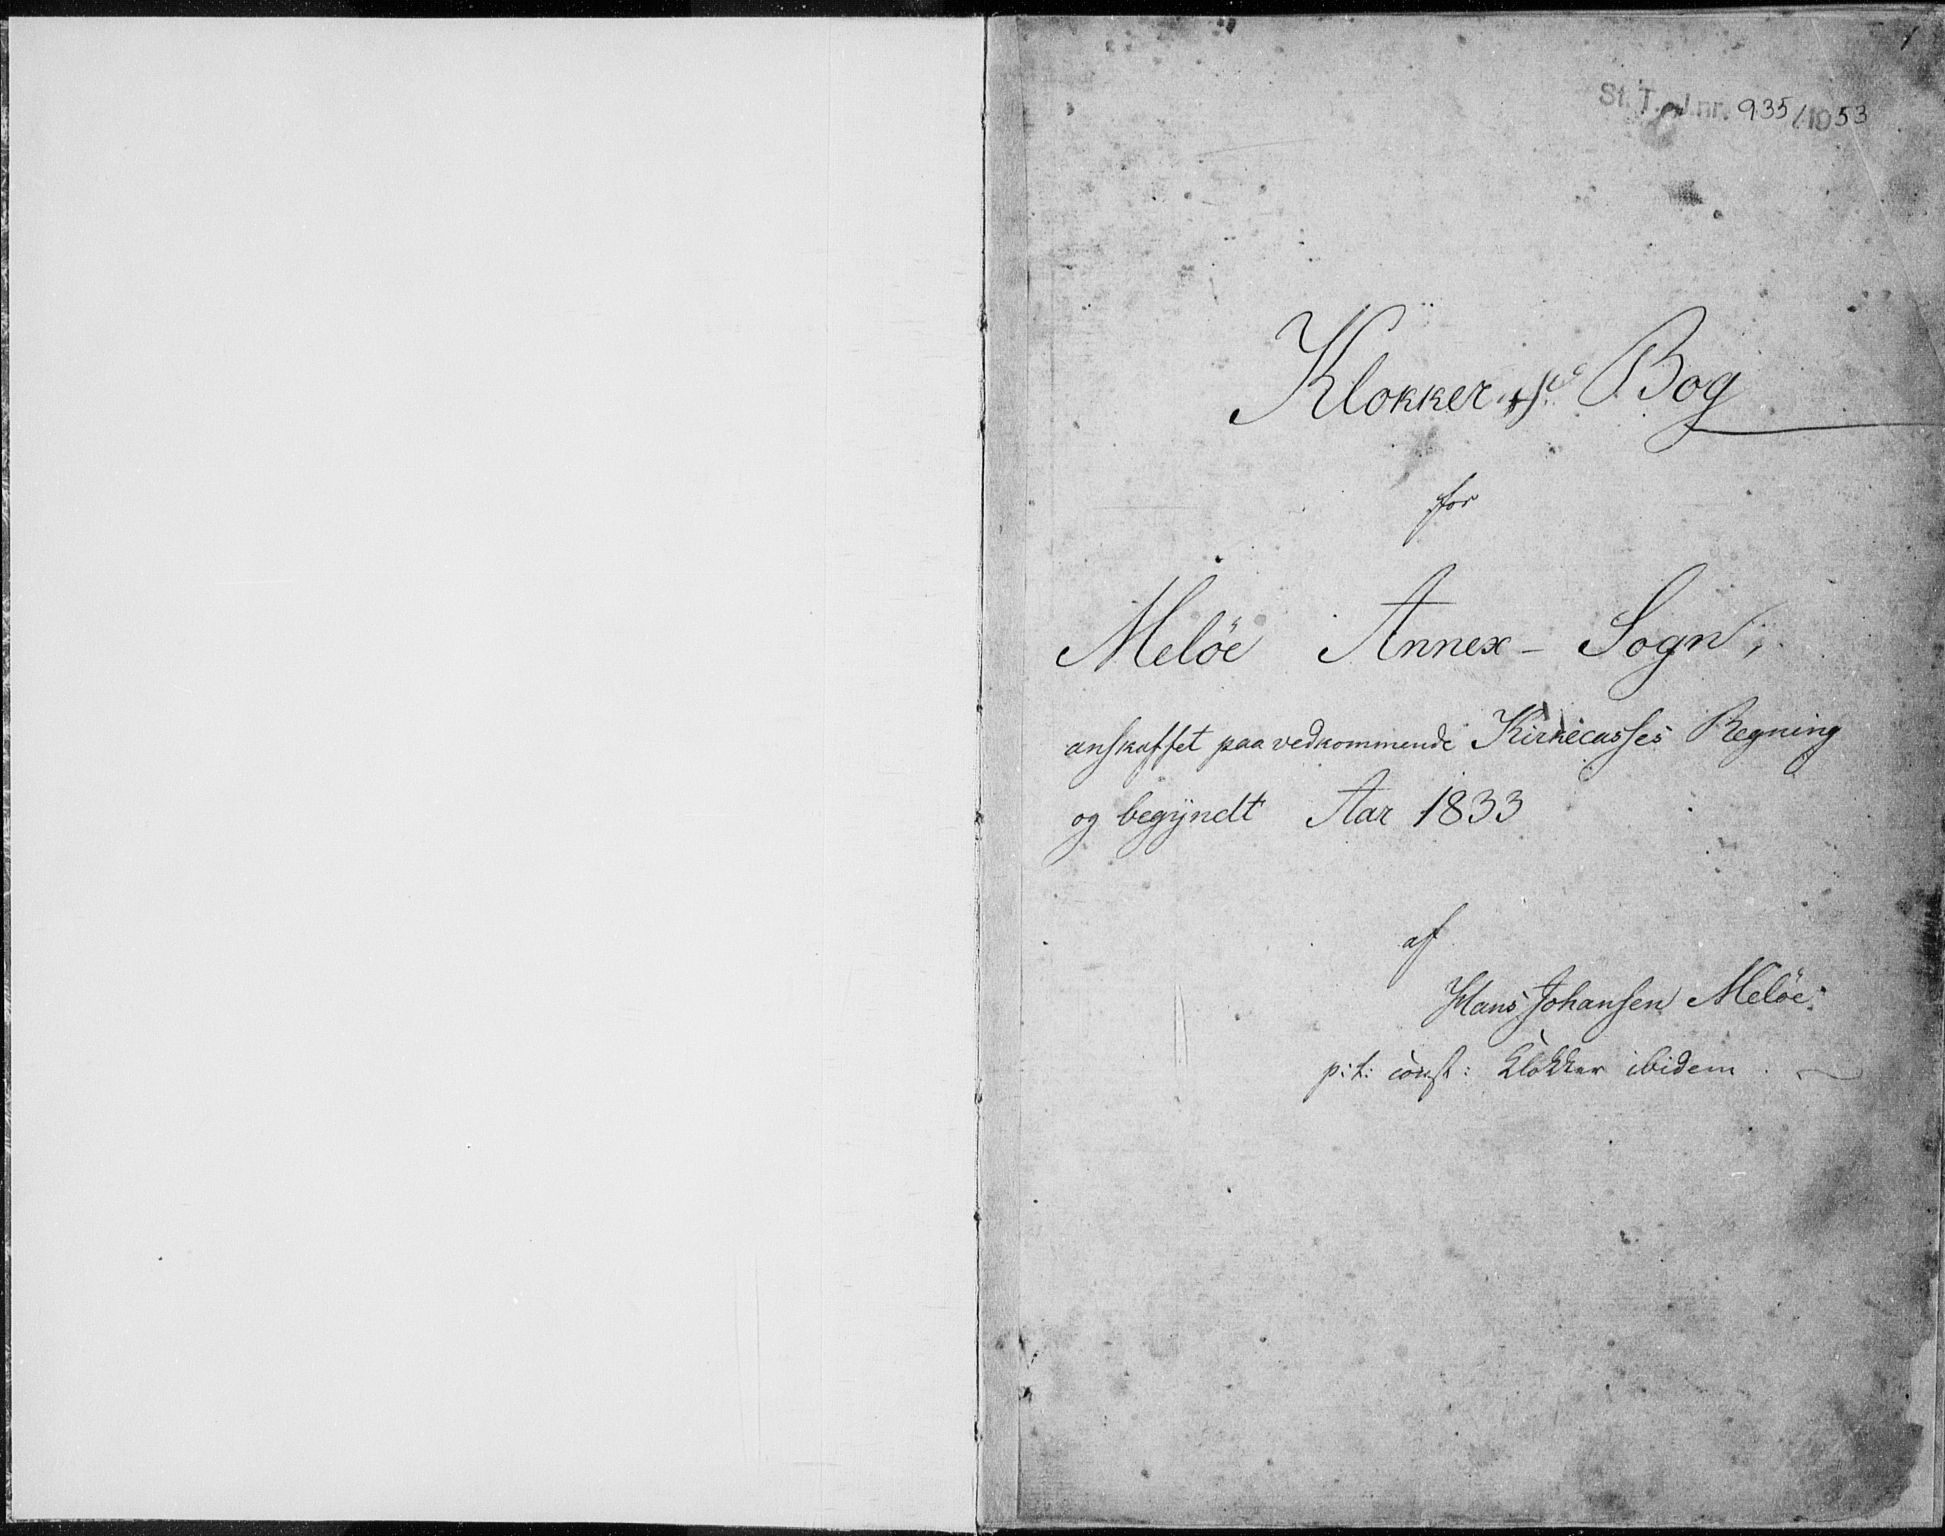 1
St. T. J.nr. 935/1953
Klokker Bog
for
Melöe Annex - Sogn,
anskaffet paa vedkommende Kirkecasses Regning
og begÿndt Aar 1833
af
Hans Johansen Melöe
p: t: const: Klokker ibidem.